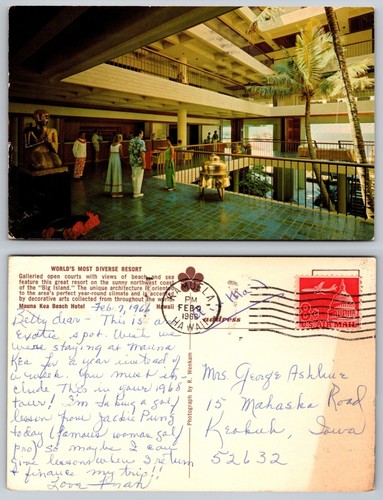 WORLD'S MOST DIVERSE RESORT
Galleried open courts with views of beach and sea
feature this great resort on the sunny northwest coast
of the "Big Island." The unique architecture is oriented
to the area's perfect year-round climate and is accented
by decorative arts collected from throughout the world.
Mauna Kea Beach Hotel Hawaii
Feb. 9, 1966
Betty dear - This is an
Exotic spot. Wish we
were staying at Mauna
Kea for a year instead of
a week. You must in-
clude this in your 1968
tour! I'm taking a golf
lesson from Jackie Pung
today (famous woman golf
pro) so maybe I can
give lessons when I return
& finance my trip!!
Love
Photograph by R. Wenkam
KAMUELA
PM
FEB 9
1966
HAWAII
Address
8c
U.S. AIR MAIL
Mrs. George Ashline
15 Mahaska Road
Keokuk, Iowa
52632